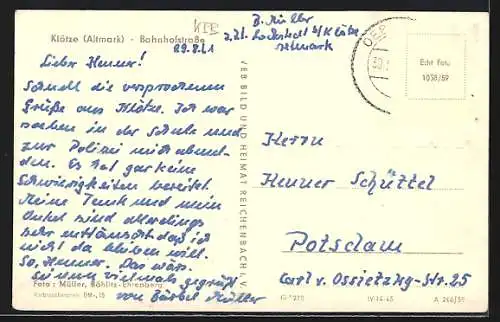 KIE
Klötze (Altmark) - Bahnhofstraße
29.8.61
B. Müller
z.Zt. Lockstedt b/Klötze
Altmark
OEB
30.
Echt Foto
1038/59
Lieber Henner!
Schnell die versprochenen
Grüße aus Klötze. Ich war
soeben in der Schule und
zur Polizei mich abmel-
den. Es hat gar keine
Schwierigkeiten bereitet.
Meine Tante und mein
Onkel sind allerdings
sehr enttäuscht daß ich
nicht da bleiben will.
So, Henner. Das wärs.
Sei nun vielmals gegrüßt
von Bärbel Müller
VEB BILD UND HEIMAT REICHENBACH i. V.
Herrn
Henner Schüttel
Potsdam
Carl v. Ossietzky-Str. 25
Foto: Müller, Böhlitz-Ehrenberg
IV-14-45
A 266/59